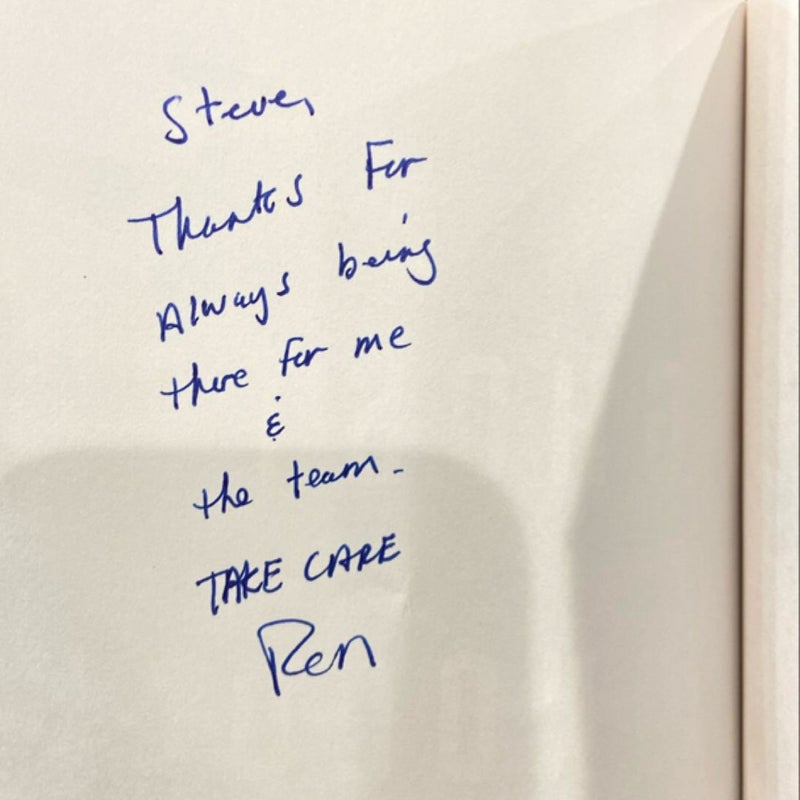 Steve,
Thanks For
Always being
there for me
&
the team.
TAKE CARE
Ren